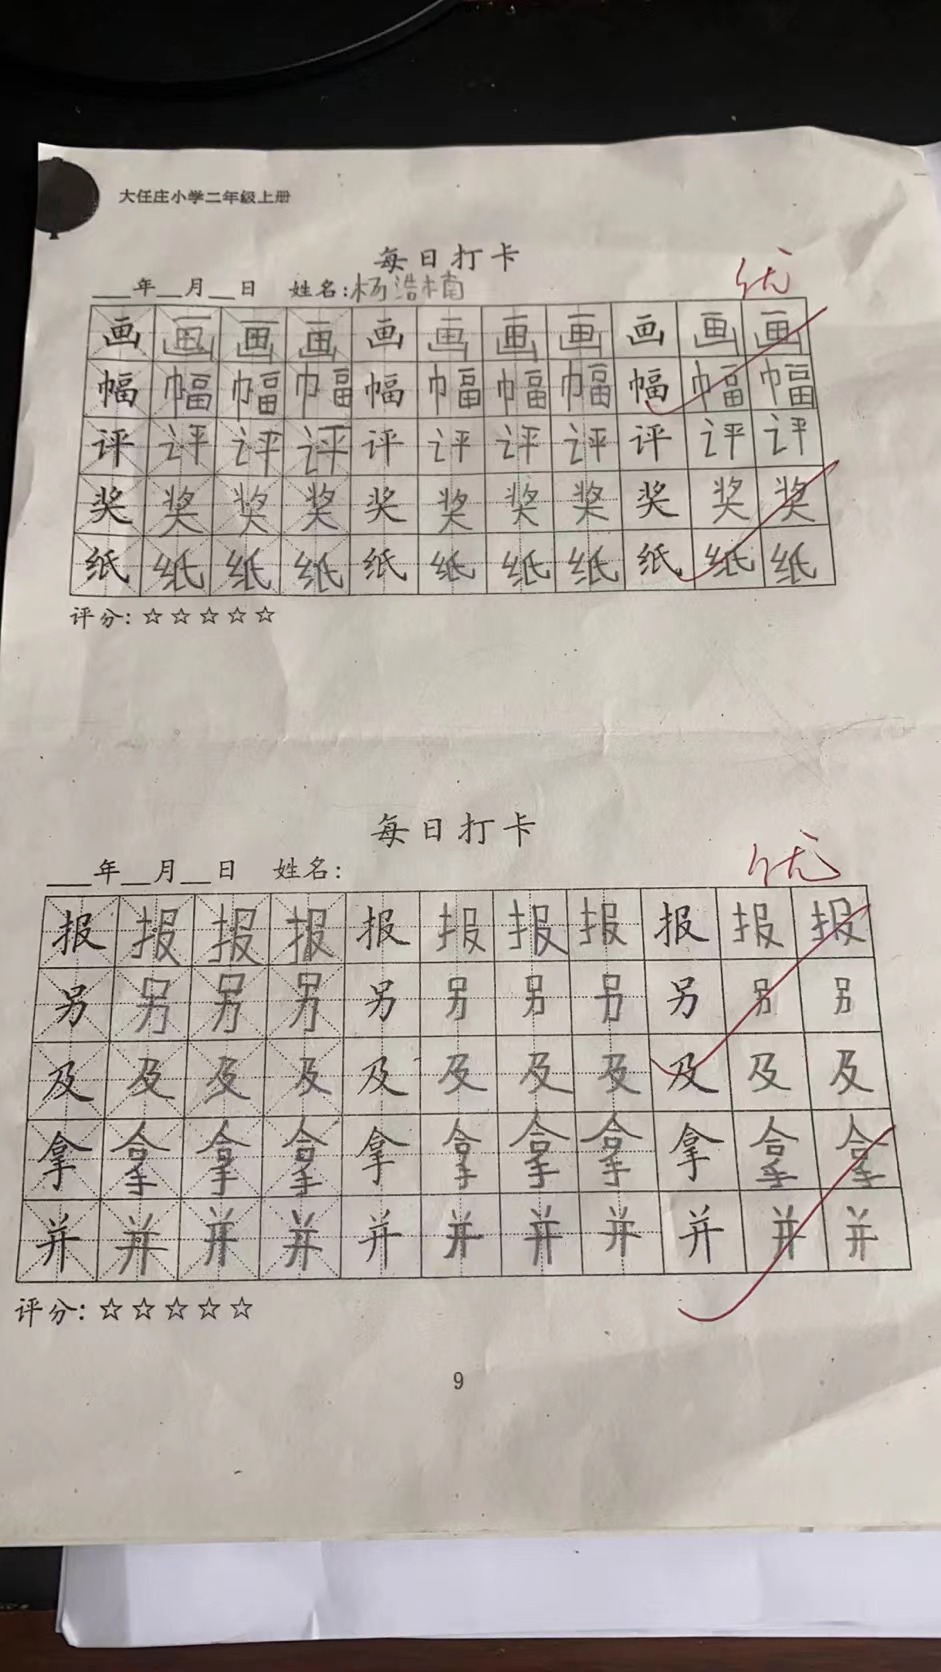 大任庄小学二年级上册
每日打卡
优
___年__月__日 姓名:杨浩楠
画画画画画画画画画画画
幅幅幅幅幅幅幅幅幅幅幅
评评评评评评评评评评评
奖奖奖奖奖奖奖奖奖奖奖
纸纸纸纸纸纸纸纸纸纸纸
评分:☆☆☆☆☆
每日打卡
优
___年__月__日 姓名:
报报报报报报报报报报报
另另另另另另另另另另另
及及及及及及及及及及及
拿拿拿拿拿拿拿拿拿拿拿
并并并并并并并并并并并
评分:☆☆☆☆☆
9